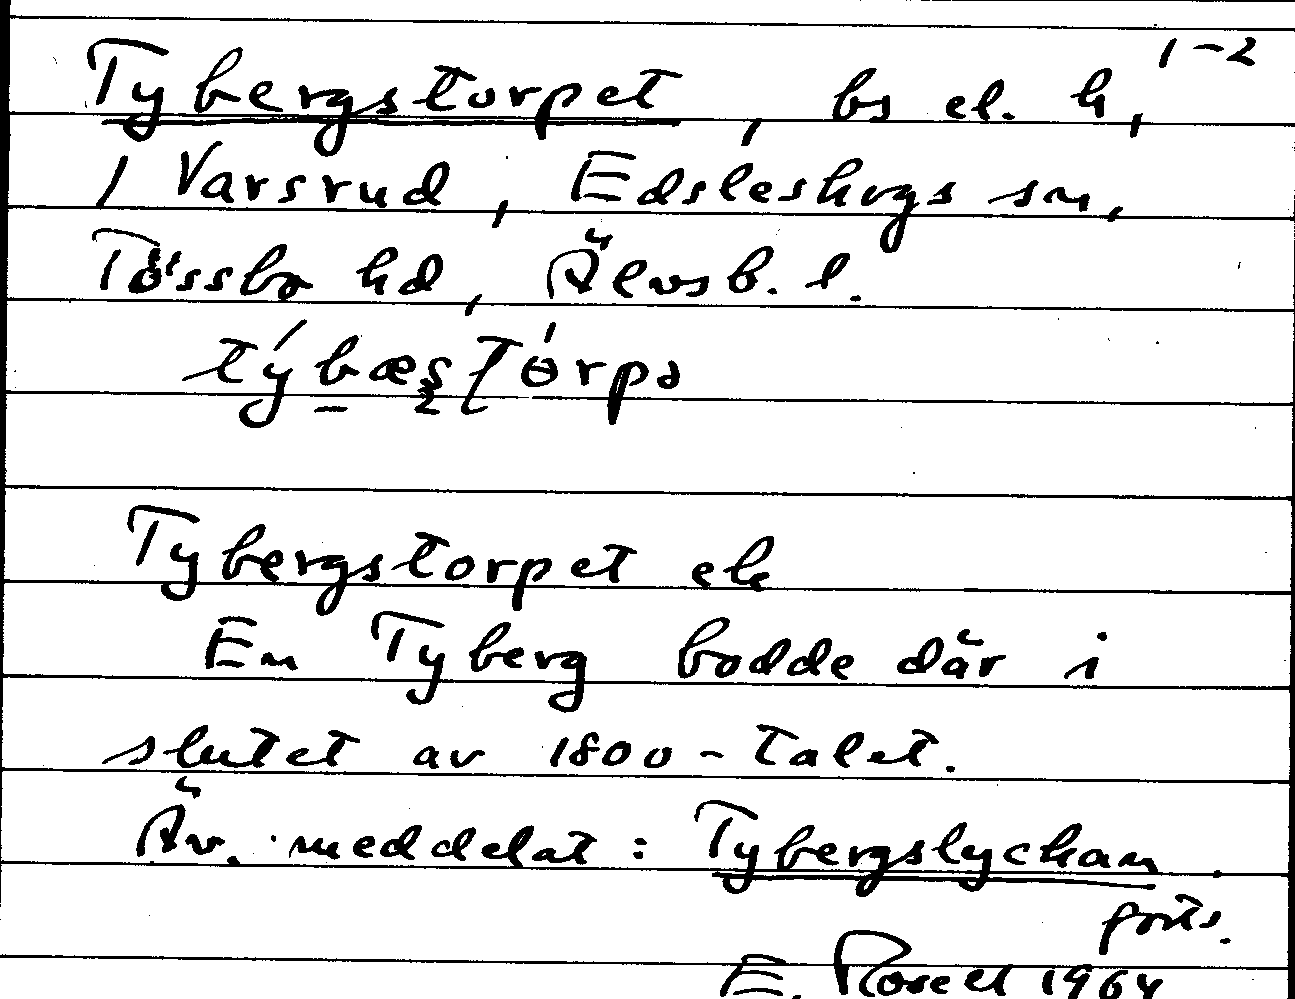 1-2
Tybergstorpet, bs el. h,
i Varsrud, Edsleskogs sn,
Tössbo hd, Älvsb. l.
Tybergstorpet ek
En Tyberg bodde där i
slutet av 1800-talet.
Äv. meddelat: Tybergslyckan.
forts.
E. Rosell 1964